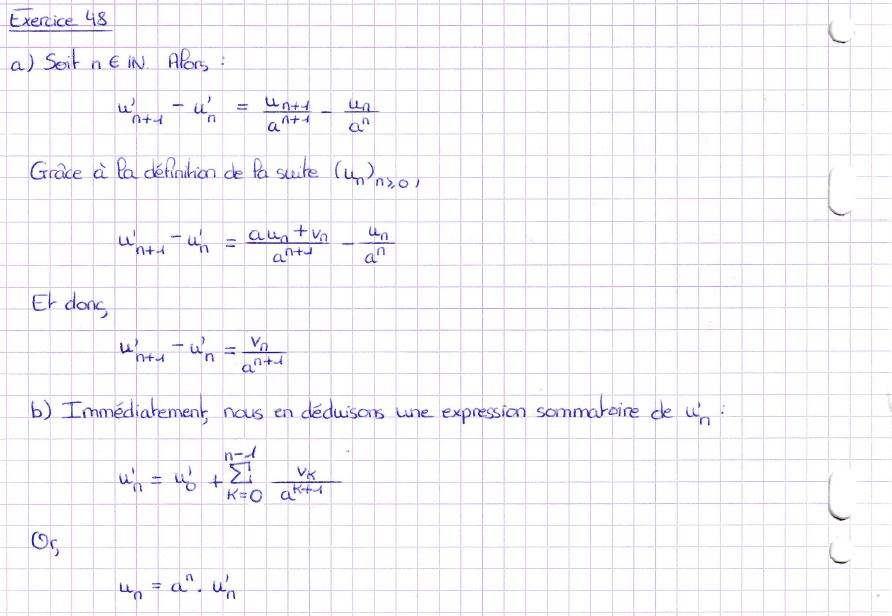 Exercice 48
a) Soit n ∈ ℕ. Alors :
u'ₙ₊₁ − u'ₙ = uₙ₊₁/aⁿ⁺¹ − uₙ/aⁿ
Grâce à la définition de la suite (uₙ)ₙ≥₀,
u'ₙ₊₁ − u'ₙ = (auₙ + vₙ)/aⁿ⁺¹ − uₙ/aⁿ
Et donc,
u'ₙ₊₁ − u'ₙ = vₙ/aⁿ⁺¹
b) Immédiatement, nous en déduisons une expression sommatoire de u'ₙ :
u'ₙ = u'₀ + ∑_{k=0}^{n−1} vₖ/aᵏ⁺¹
Or,
uₙ = aⁿ . u'ₙ